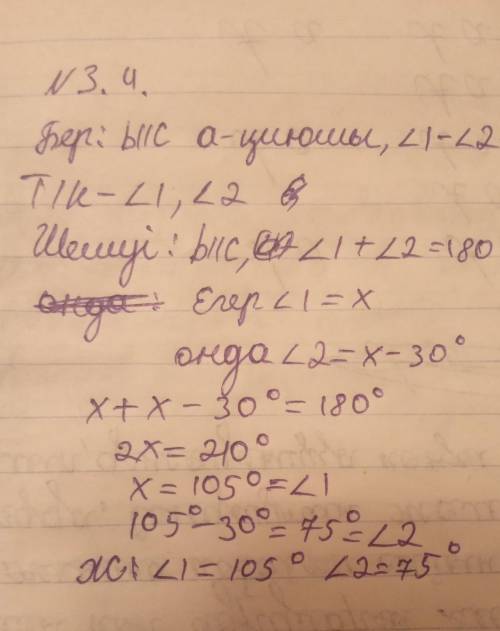 N 3. 4.
Бер: b||c а-қиюшы, ∠1-∠2
Т/к-∠1, ∠2
Шешуі: b||c, ∠1+∠2=180
Егер ∠1=x
онда ∠2=x-30°
x+x-30°=180°
2x=210°
x=105°=∠1
105°-30°=75°=∠2
Ж: ∠1=105° ∠2=75°